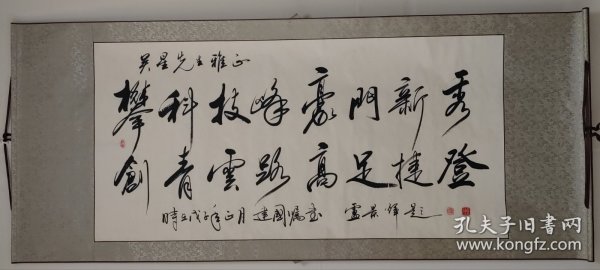 吴星先生雅正
攀科技峰豪門新秀
創青雲路高足捷登
時在戊子年正月 建國嘱書 景輝題
孔夫子旧书网
www.kongfz.com